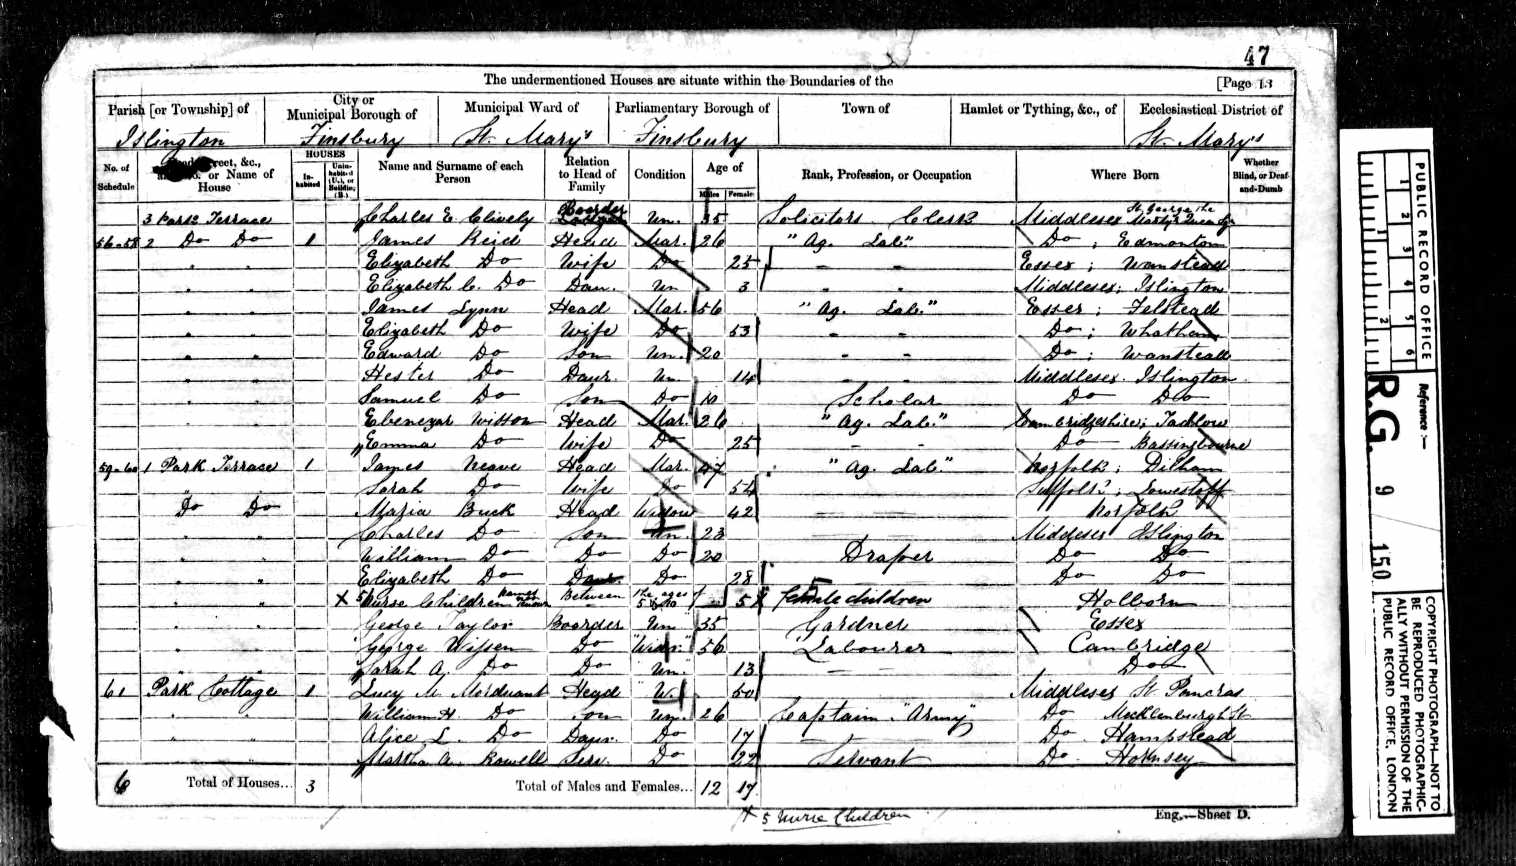 47
The undermentioned Houses are situate within the Boundaries of the
[Page 13
Parish [or Township] of
City or Municipal Borough of
Municipal Ward of
Parliamentary Borough of
Town of
Hamlet or Tything, &c., of
Ecclesiastical District of
Islington
Finsbury
St. Mary's
Finsbury
St. Mary's
No. of Schedule
Road, Street, &c., and No. or Name of House
HOUSES
Inhabited
Uninhabited (U.), or Building (B.)
Name and Surname of each Person
Relation to Head of Family
Condition
Age of
Males
Females
Rank, Profession, or Occupation
Where Born
Whether Blind, or Deaf-and-Dumb
3 Park Terrace Charles E. Clively Boarder Un. 35 Solicitors Clerk Middlesex St. George the Martyr
56-58 2 Do Do 1 James Reid Head Mar. 26 "Ag. Lab." Do; Edmonton
" " Elizabeth Do Wife Do 25 - - Essex; Wanstead
" " Elizabeth C. Do Daur. Un 3 " " Middlesex; Islington
" " James Lynn Head Mar. 56 "Ag. Lab." Essex; Felstead
" " Elizabeth Do Wife Do 53 - - Do;
" " Edward Do Son Un. 20 - - Do; Wanstead
" " Hester Do Daur. Un. 14 - - Middlesex. Islington
" " Samuel Do Son Do 10 Scholar Do Do
" " Ebenezar Witton Head Mar. 26 "Ag. Lab." Cambridgeshire; Tadlow
" Emma Do Wife Do 25 - - Do Bassingbourne
59-60 1 Park Terrace 1 James Neave Head Mar. 47 "Ag. Lab." Norfolk; Dilham
" Sarah Do Wife Do 54 Suffolk; Lowestoft
Do Do Maria Buck Head Widow 42 Norfolk
" " Charles Do Son Un. 23 Middlesex Islington
" " William Do Do Do 20 Draper Do Do
" " Elizabeth Do Daur. Do 28 Do Do
" " X 5 Nurse Children names not known Between the ages of 5 & 10 5 X Female children Holborn
" " George Taylor Boarder Un 35 Gardner Essex
" " George Wissen Do "Widr." 56 Labourer Cambridge
" " Sarah A. Do Do "Un." 13 - - Do
61 Park Cottage 1 Lucy M. Mordaunt Head W. 50 Middlesex St. Pancras
" " William H Do Son Un. 26 Captain "Army" Do Mecklenburgh St
" " Alice L. Do Daur. Do 17 Do Hampstead
" Martha A. Rowell Serv. Do 22 Servant Do Hornsey
6 Total of Houses... 3 Total of Males and Females... 12 17
X 5 Nurse Children
Eng.—Sheet D.
PUBLIC RECORD OFFICE
1 2 3 4 5 6
1 2
Reference:—
R.G. 9 150
COPYRIGHT PHOTOGRAPH—NOT TO BE REPRODUCED PHOTOGRAPHICALLY WITHOUT PERMISSION OF THE PUBLIC RECORD OFFICE, LONDON